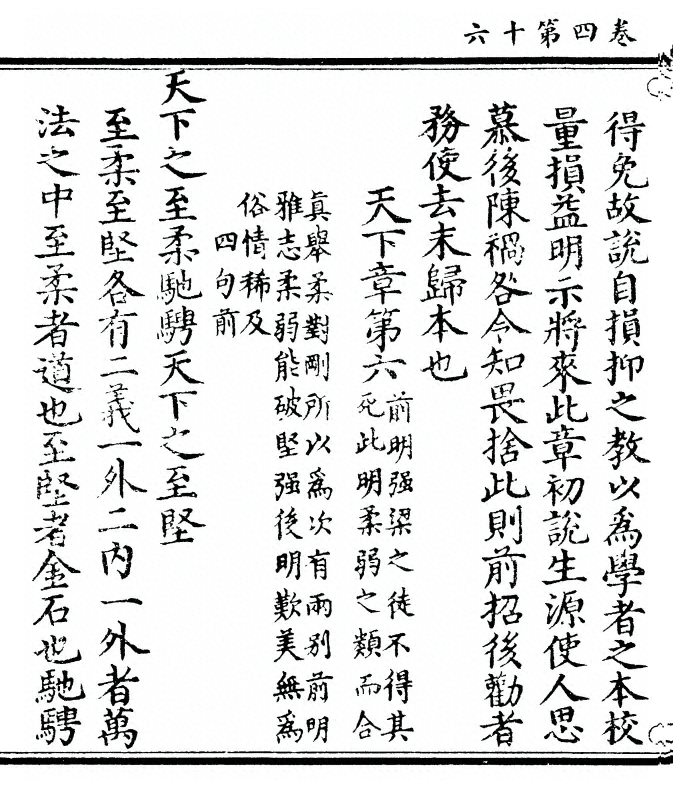 六十第四卷
得免故說自損抑之教以為學者之本校
量損益明示將來此章初說生源使人思
慕後陳禍咎令知畏捨此則前招後勸者
務使去末歸本也
天下章第六
前明强梁之徒不得其
死此明柔弱之類而合
真舉柔對剛所以為次有兩别前明
雅志柔弱能破堅强後明歎美無為
俗情稀及
四句前
天下之至柔馳騁天下之至堅
至柔至堅各有二義一外二內一外者萬
法之中至柔者道也至堅者金石也馳騁